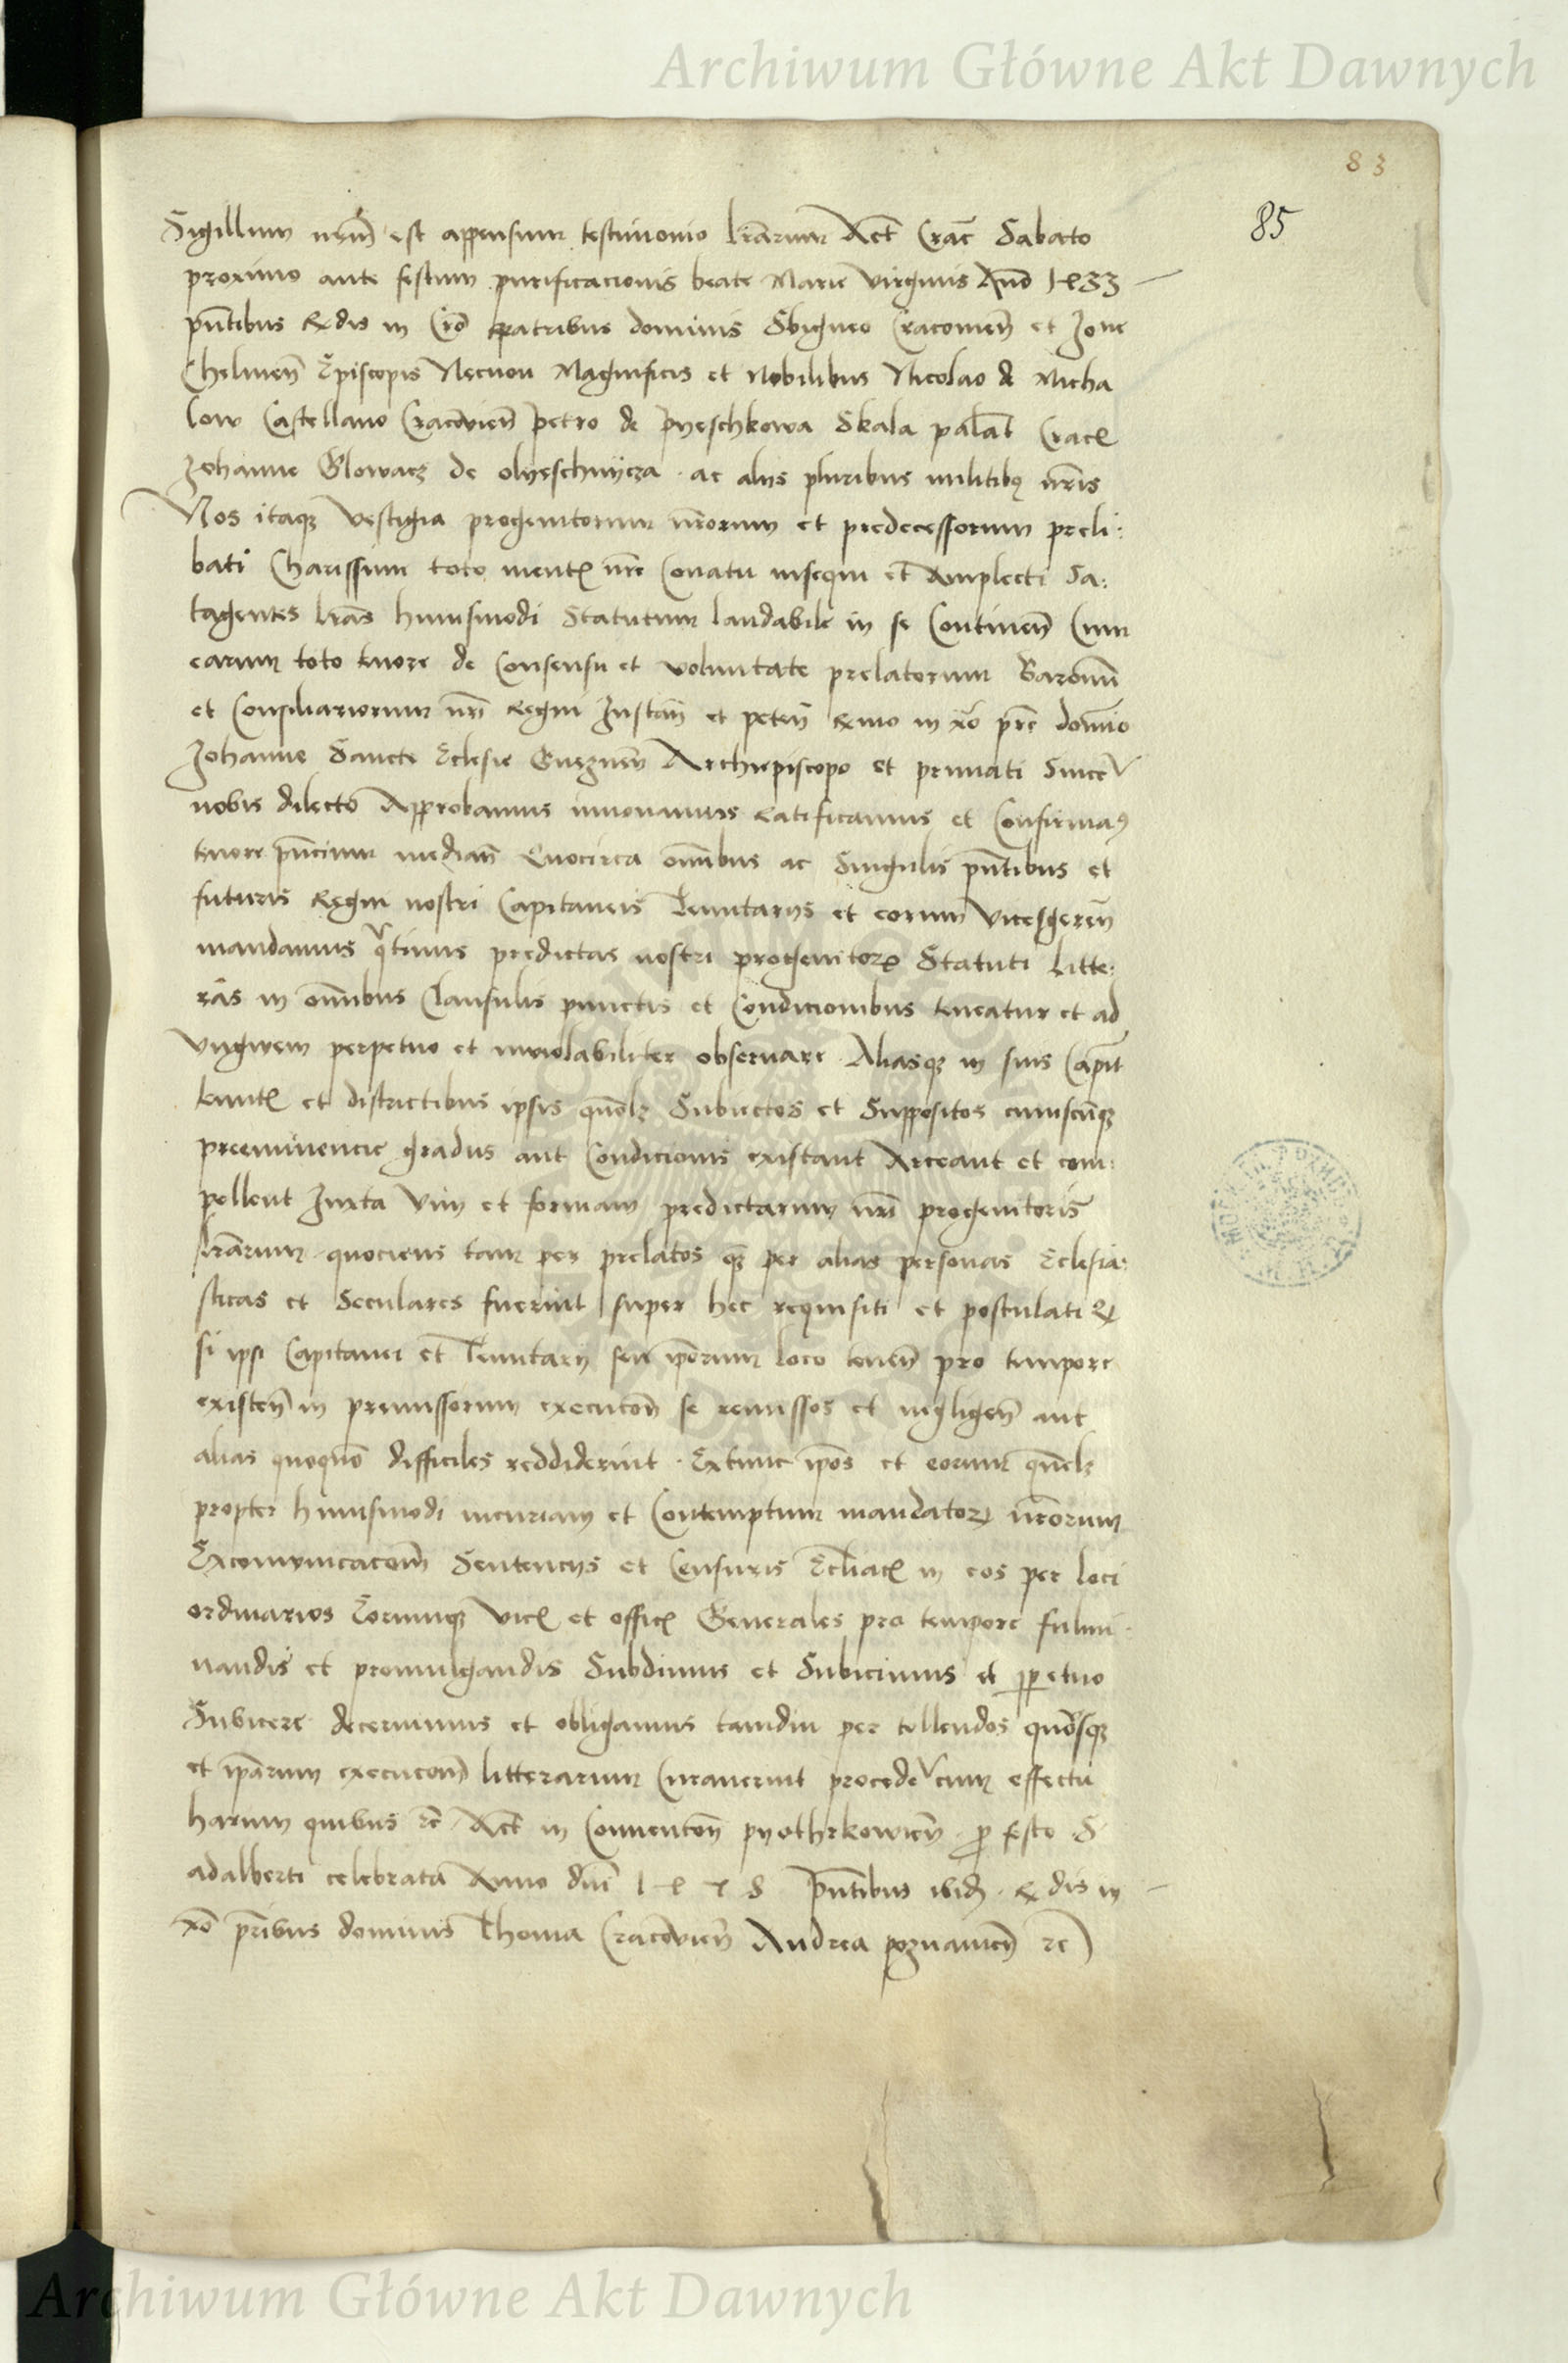 Archiwum Główne Akt Dawnych
83
85
Sigillum nr̄m est appensum testimonio lr̄arum Act̄ Crac̄ Sabato
proximo ante festum purificacionis beate Marie virginis Anō 1433
pn̄tibus Rdis in Cro patribus dominis Sbigneo Cracouien̄ et Jone
Chelmen̄ Episcopis Necnon Magnificis et Nobilibus Nicolao de Micha
low Castellano Cracouien̄ Petro de Pyeschkowa Skala palat̄ Crac̄
Johanne Glowacz de olyeschnycza ac alijs pluribus militibꝫ nr̄is
Nos itaqꝫ vestigia progenitorum nr̄orum et predecessorum preli:
bati Charissimi toto mentꝭ nr̄e Conatu insequi et Amplecti Sa:
tagentes lr̄as huiusmodi Statutum laudabile in se Continen̄ Cum
earum toto tenore de Consensu et voluntate prelatorum Baronū
et Consiliariorum nr̄i Regni Instan̄ et peten̄ Rmo in xō pr̄e domīo
Johanne Sancte Eclesie Gneznen̄ Archiepiscopo et primati Sincer̄
nobis dilecto Approbamus innouamus ratificamus et Confirmaꝫ
tenore pn̄cium median̄ Quocirca om̄ibus ac Singulis pn̄tibus et
futuris Regni nostri Capitaneis Tenutarijs et eorum vicesgeren̄
mandamus qͣtinus predictas nostri progenitorꝭ Statuti litte:
ras in om̄ibus Clausulis punctis et Condicionibus teneatur et ad
vngwem perpetuo et inuiolabiliter obseruare Aliasqꝫ in suis Capit̄
tenutꝭ et districtibus ipsis quōlꝫ Subiectos et Suppositos cuiuscūqꝫ
preeminencie gradus aut Condicionis existant Arceant et com:
pellent Juxta vim et formam predictarum nr̄i progenitoris
lr̄arum quociens tam per prelatos qꝫ per alias personas Eclesia:
sticas et Seculares fuerint super hec requisiti et postulati Et
si ipsi Capitanei et Tenutarij seu ip̄orum loco tenen̄ pro tempore
existen̄ in premissorum execucōn̄ se remissos et negligen̄ aut
alias quoquō difficiles reddiderint Extunc ip̄os et eorum quēlꝫ
propter huiusmodi incuriam et Contemptum mandatorꝭ nr̄orum
Excomunicacōn̄ Sentencijs et Censuris Ecl̄iacꝭ in eos per loci
ordinarios Eorumqꝫ vicꝭ et officꝭ Generales pro tempore fulmi
nandis et promulgandis Subdimus et Subicimus et ꝑpetuo
Subicere decernimus et obligamus tamdiu per tollendos quousqꝫ
et ip̄arum execucōn̄ litterarum Curauerint procedēr cum effectu
harum quibus ꝛc̄ Act̄ in Conuencōn̄ pyothrkowien̄ ꝓ festo S
adalberti celebrata Anno dnī 1478 pn̄tibus ibidꝫ Rdis in
xō pr̄ibus dominis Thoma Cracouien̄ Andrea poznanien̄ ꝛc
Archiwum Główne Akt Dawnych